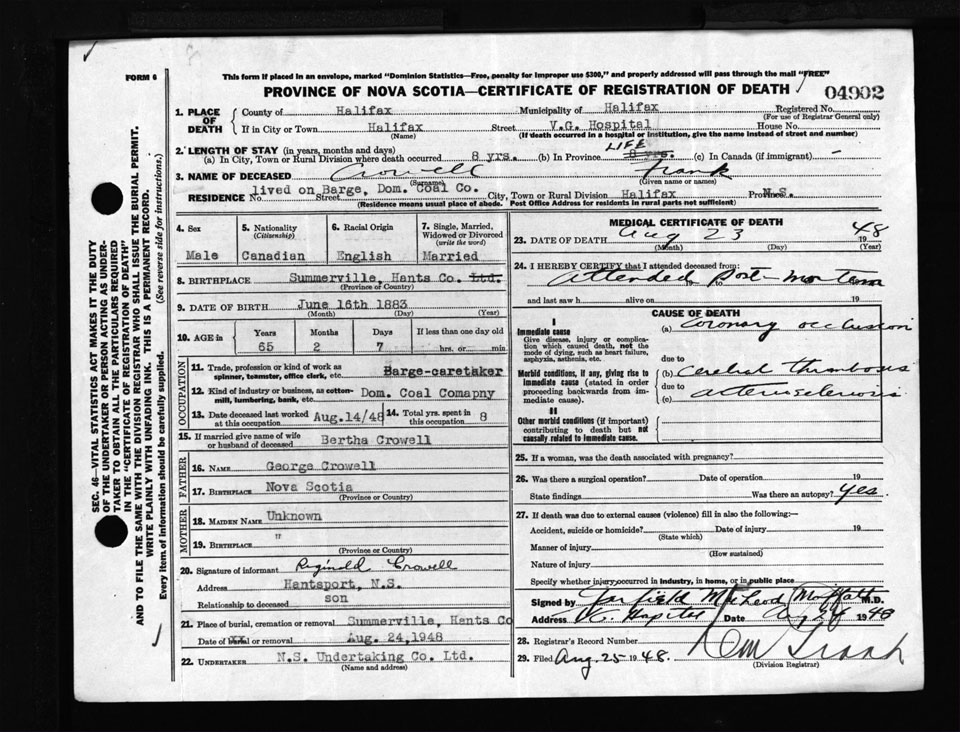 FORM 6
This form if placed in an envelope, marked "Dominion Statistics—Free, penalty for improper use $300," and properly addressed will pass through the mail "FREE"
PROVINCE OF NOVA SCOTIA—CERTIFICATE OF REGISTRATION OF DEATH
04902
1. PLACE OF DEATH
County of Halifax Municipality of Halifax Registered No.
(For use of Registrar General only)
If in City or Town Halifax Street V.G. Hospital House No.
(Name) (If death occurred in a hospital or institution, give the name instead of street and number)
2. LENGTH OF STAY (in years, months and days)
LIFE
(a) In City, Town or Rural Division where death occurred 8 yrs. (b) In Province 8 yrs. (c) In Canada (if immigrant) —
3. NAME OF DECEASED Crowell Frank
(Surname) (Given name or names)
RESIDENCE No. lived on Barge, Dom. Coal Co. Street City, Town or Rural Division Halifax Province N.S.
(Residence means usual place of abode. Post Office Address for residents in rural parts not sufficient)
4. Sex
Male
5. Nationality
(Citizenship)
Canadian
6. Racial Origin
English
7. Single, Married, Widowed or Divorced
(write the word)
Married
8. BIRTHPLACE Summerville, Hants Co. Ltd.
(Province or Country)
9. DATE OF BIRTH June 16th 1883
(Month) (Day) (Year)
10. AGE in Years Months Days If less than one day old
65 2 7 hrs. or min
OCCUPATION
11. Trade, profession or kind of work as spinner, teamster, office clerk, etc. Barge-caretaker
12. Kind of industry or business, as cotton-mill, lumbering, bank, etc. Dom. Coal Comapny
13. Date deceased last worked at this occupation Aug.14/48
14. Total yrs. spent in this occupation 8
15. If married give name of wife or husband of deceased Bertha Crowell
FATHER
16. NAME George Crowell
17. BIRTHPLACE Nova Scotia
(Province or Country)
MOTHER
18. MAIDEN NAME Unknown
19. BIRTHPLACE "
(Province or Country)
20. Signature of informant Reginald Crowell
Address Hantsport, N.S.
Relationship to deceased son
21. Place of burial, cremation or removal Summerville, Hants Co
Date of burial or removal Aug. 24,1948
22. UNDERTAKER N.S. Undertaking Co. Ltd.
(Name and address)
MEDICAL CERTIFICATE OF DEATH
23. DATE OF DEATH Aug 23 1948
(Month) (Day) (Year)
24. I HEREBY CERTIFY that I attended deceased from:
Attended post-mortem 19 to 19
and last saw h alive on 19
CAUSE OF DEATH
I
Immediate cause
Give disease, injury or complication which caused death, not the mode of dying, such as heart failure, asphyxia, asthenia, etc.
(a) Coronary occlusion
due to
Morbid conditions, if any, giving rise to immediate cause (stated in order proceeding backwards from immediate cause).
(b) Cerebral thrombosis
due to
(c) arteriosclerosis
II
Other morbid conditions (if important) contributing to death but not causally related to immediate cause.
25. If a woman, was the death associated with pregnancy?
26. Was there a surgical operation? Date of operation 19
State findings Was there an autopsy? Yes.
27. If death was due to external causes (violence) fill in also the following:—
Accident, suicide or homicide? Date of injury 19
(State which)
Manner of injury
(How sustained)
Nature of injury
Specify whether injury occurred in industry, in home, or in public place
Signed by Garfield McLeod Moffatt M.D.
Address V.G. Hospital Date Aug 24 1948
28. Registrar's Record Number
29. Filed Aug. 25 1948.
(Division Registrar)
SEC. 46—VITAL STATISTICS ACT MAKES IT THE DUTY
OF THE UNDERTAKER OR PERSON ACTING AS UNDER-
TAKER TO OBTAIN ALL THE PARTICULARS REQUIRED
IN THE "CERTIFICATE OF REGISTRATION OF DEATH"
AND TO FILE THE SAME WITH THE DIVISION REGISTRAR WHO SHALL ISSUE THE BURIAL PERMIT.
WRITE PLAINLY WITH UNFADING INK. THIS IS A PERMANENT RECORD.
Every item of information should be carefully supplied. (See reverse side for instructions.)